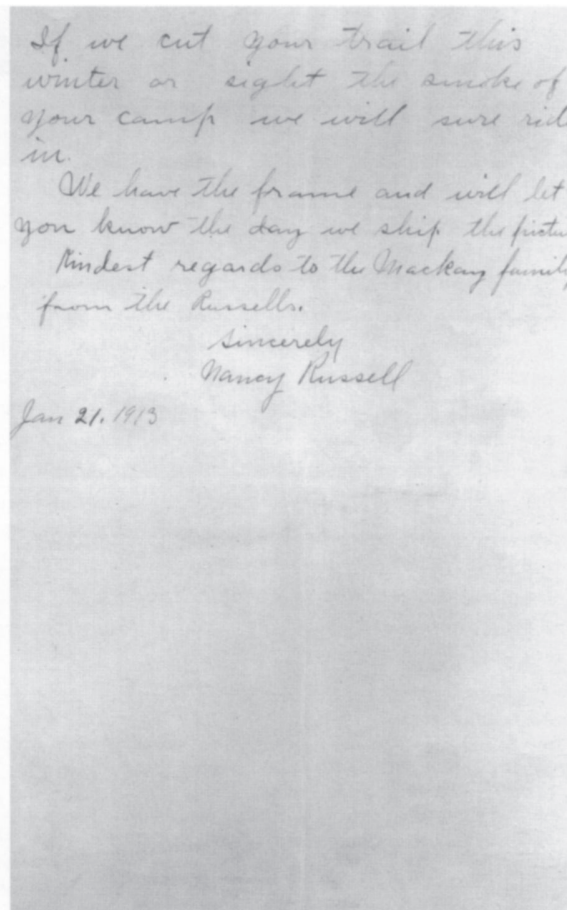 If we cut your trail this
winter or sight the smoke of
your camp we will sure rid
in.
We have the frame and will let
you know the day we ship the pictu
Kindest regards to the Mackay family
from the Russells.
Sincerely
Nancy Russell
Jan 21. 1913